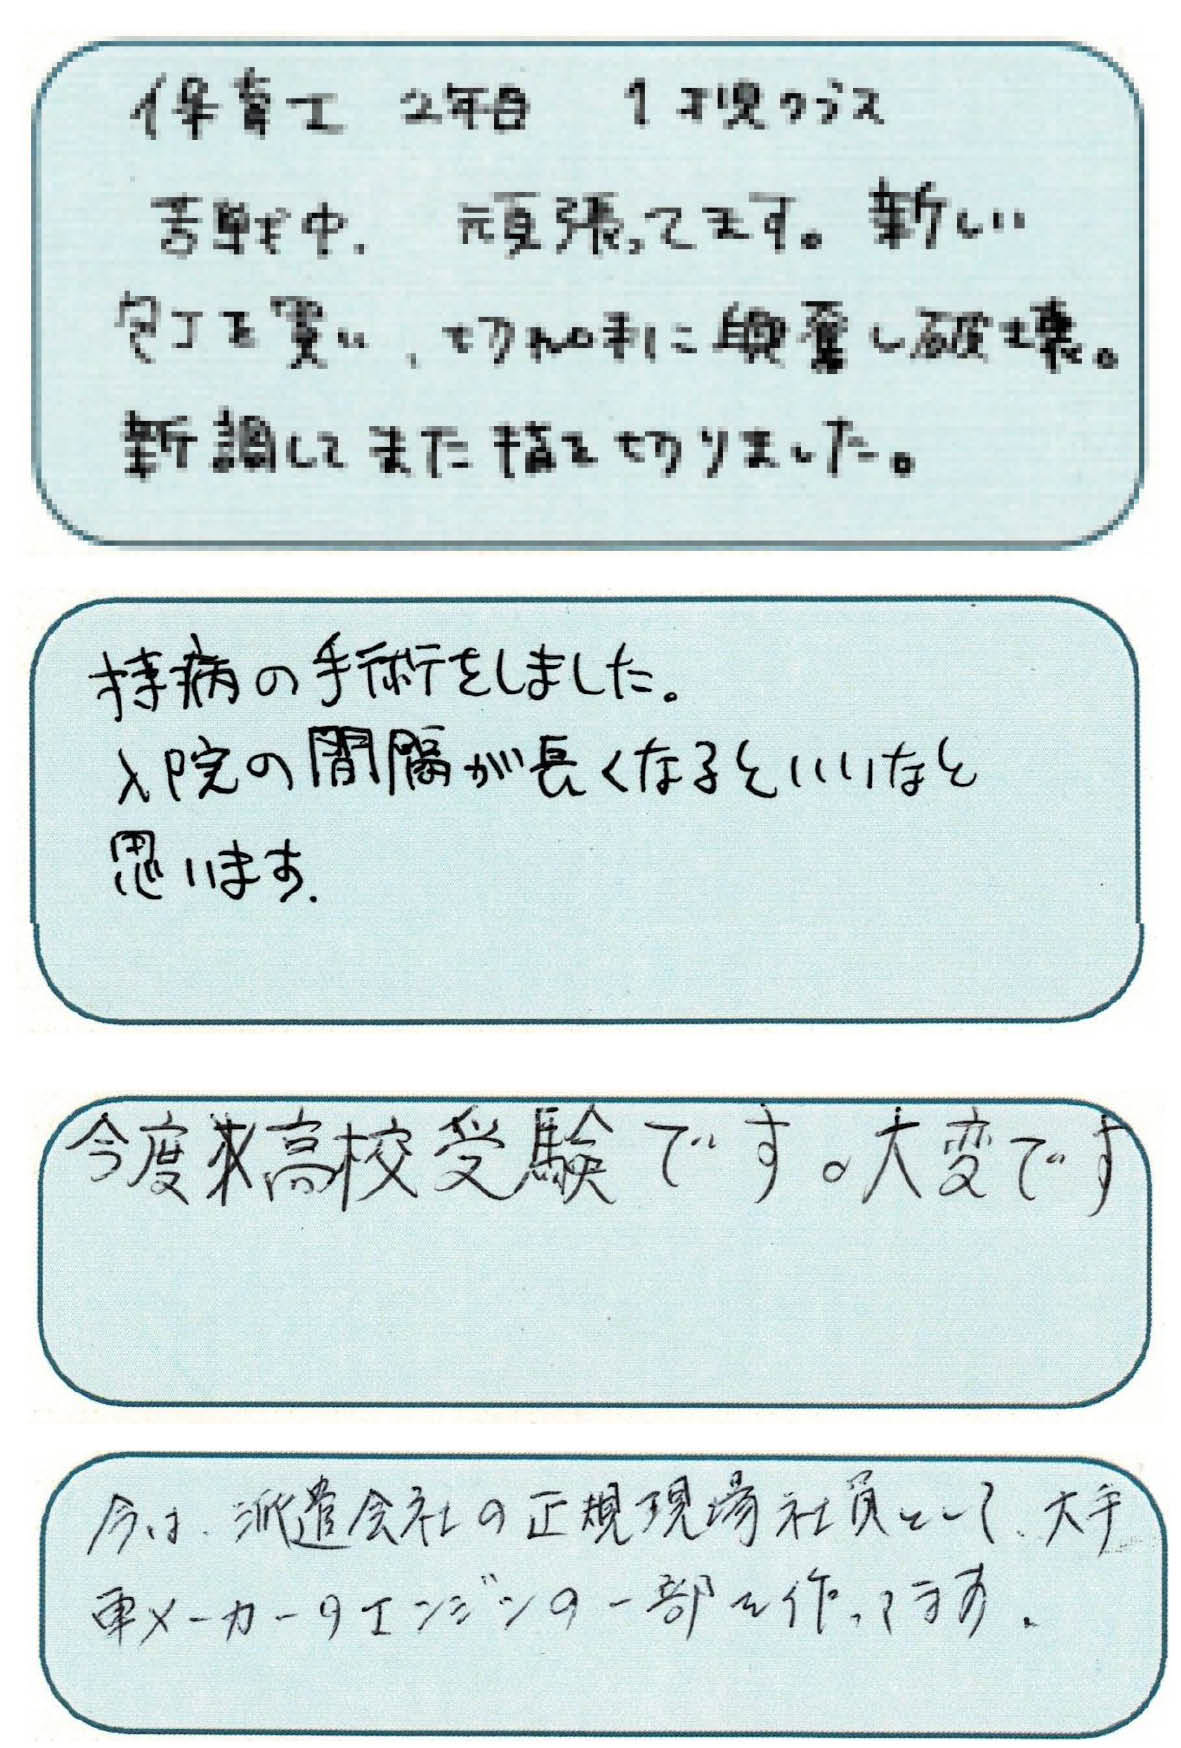 保育士 2年目 1才児クラス
苦戦中. 頑張ってます。新しい
包丁を買い、切れ味に興奮し破壊。
新調してまた指を切りました。
持病の手術をしました。
入院の間隔が長くなるといいなと
思います.
今度高校受験です。大変です
今は、派遣会社の正規現場社員として、大手
車メーカーのエンジンの一部を作ってます.